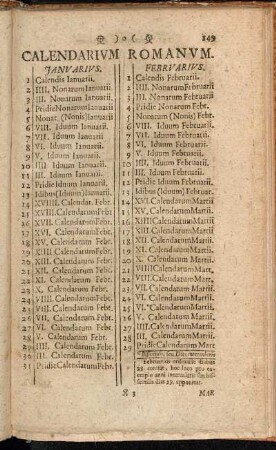 )o(
149
CALENDARIVM ROMANVM.
JANVARIVS.
1 Calendis Ianuarii.
2 IIII. Nonarum Ianuarii.
3 III. Nonarum Ianuarii
4 Pridie Nonarum Ianuarii
5 Nonæ. (Nonis) Ianuarii
6 VIII. Iduum Ianuarii.
7 VII. Iduum Ianuarii
8 VI. Iduum Ianuarii
9 V. Iduum Ianuarii.
10 IIII Iduum Ianuarii.
11 III. Iduum Ianuarii.
12 Pridie Iduum Ianuarii
13 Idibus (Iduum) Ianuarii.
14 XVIIII. Calendat. Febr.
15 XVIII. Calendarum Febr
16 XVII. Calendarum Febr.
17 XVI. Calendarum Febr.
18 XV. Calendarum Febr.
19 XIV. Calendarum Febr.
20 XIII. Calendarum Febr.
21 XII. Calendarum Febr.
22 XI. Calendarum Febr.
23 X. Calendarum Febr.
24 VIIII. Calendarum Febr.
25 VIII. Calendarum Febr.
26 VII. Calendarum Febr
27 VI. Calendarum Febr
28 V. Calendarum Febr.
29 IIII. Calendarum Febr.
30 III. Calendarum Febr.
31 Pridie Calendarum Febr.
FEBRVARIVS.
1 Calendis Februarii.
2 IIII. Nonarum Februarii
3 III. Nonarum Februarii.
4 Pridie Nonarum Febr.
5 Nonarum (Nonis) Febr.
6 VIII. Iduum Februarii.
7 VII. Iduum Februarii.
8 VI. Iduum Februarii.
9 V. Iduum Februarii.
10 IIII. Iduum Februarii.
11 III. Iduum Februarii.
12 Pridie Iduum Februarii
13 Idibus (Iduum) Februar.
14 XVI. Calendarum Martii
15 XV. Calendarum Martii.
16 XIIII Calendarum Martii
17 XIII. Calendarum Martii
18 XII. Calendarum Martii
19 XI. Calendarum Martii.
20 X. Calendarum Martii.
21 VIIII Calendarum Mart.
22 VIII Calendarum Mart.
23 VII. Calendarum Martii
24 VI. Calendarum Martii
25 VI. Calendarum Martii
26 V. Calendarum Martii
27 IIII. Calendarum Martii
28 III. Calendarum Martii
29 Pridie Calendarum Mart
Februarius ordinarie diebus
28. constat, hoc loco pro ex-
emplo anni intercalaris
dies 29. apparent.
K 3
MAR